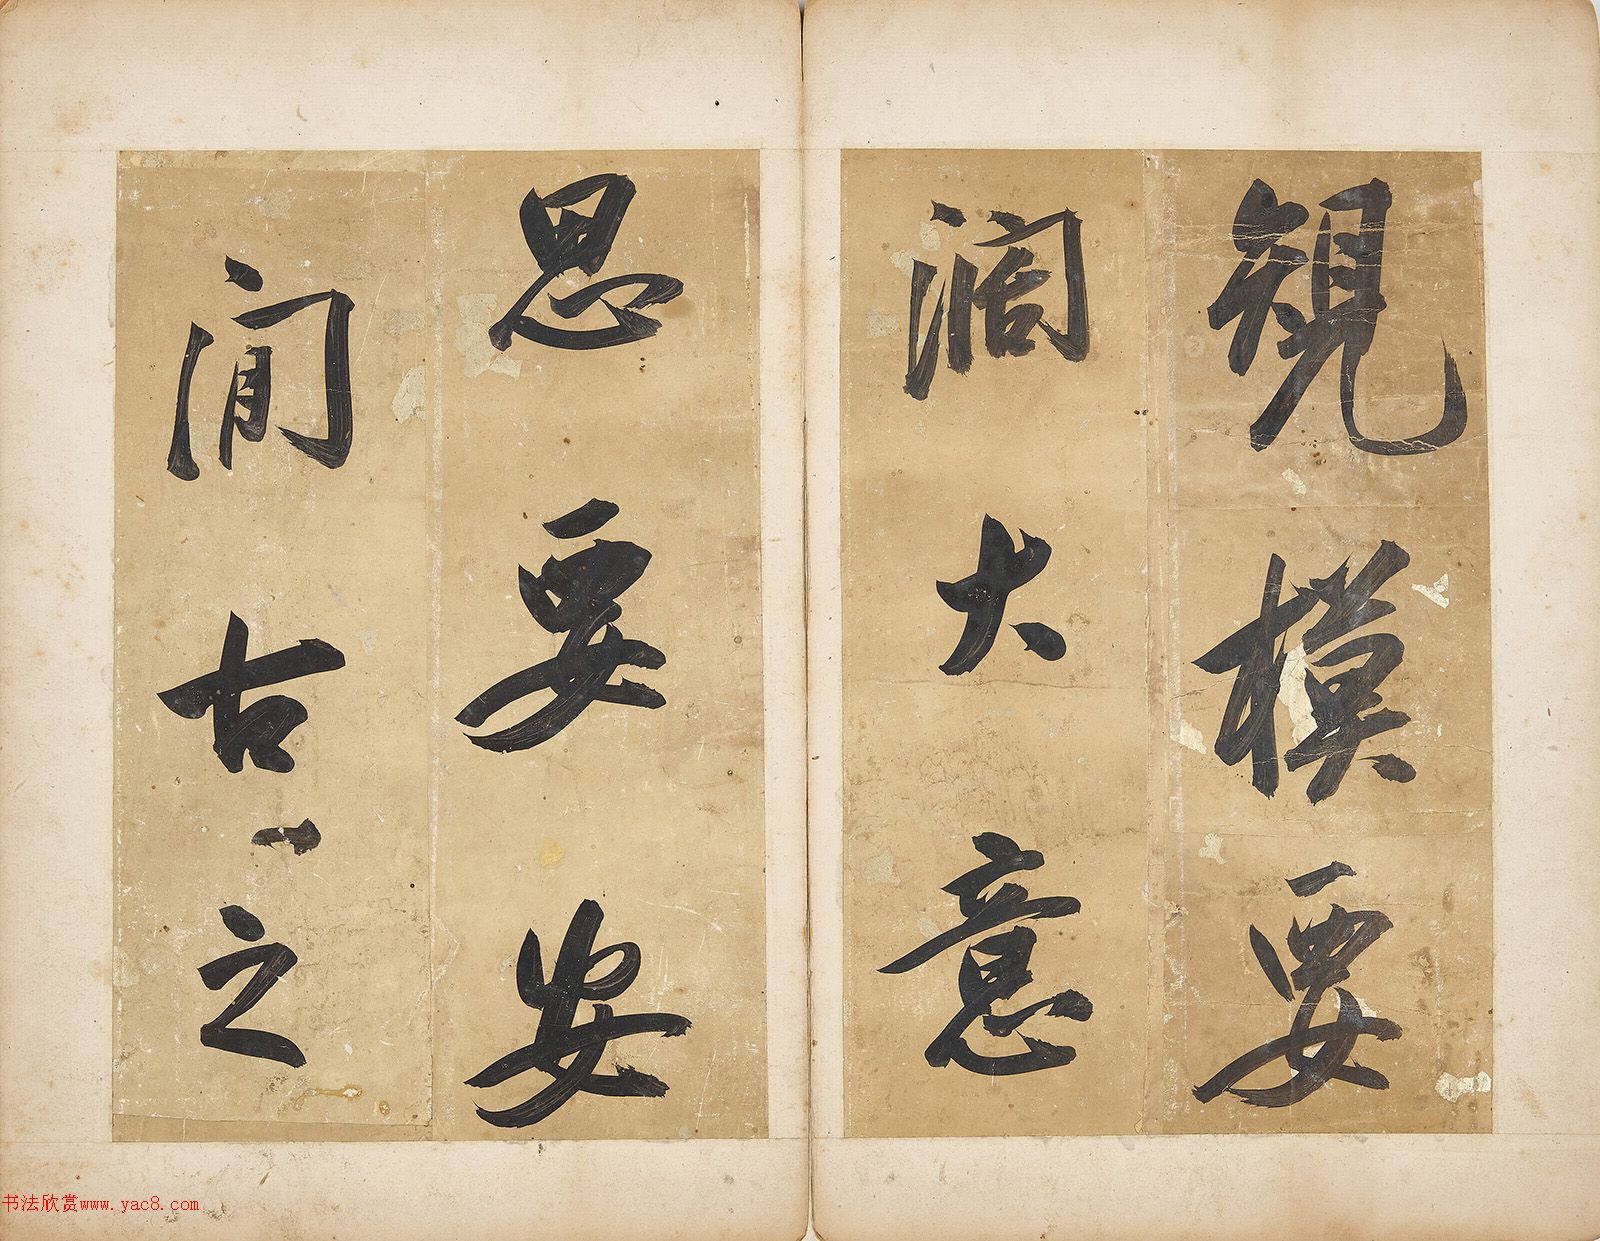 規模要
濶大意
思要安
閒古之
书法欣赏www.yac8.com